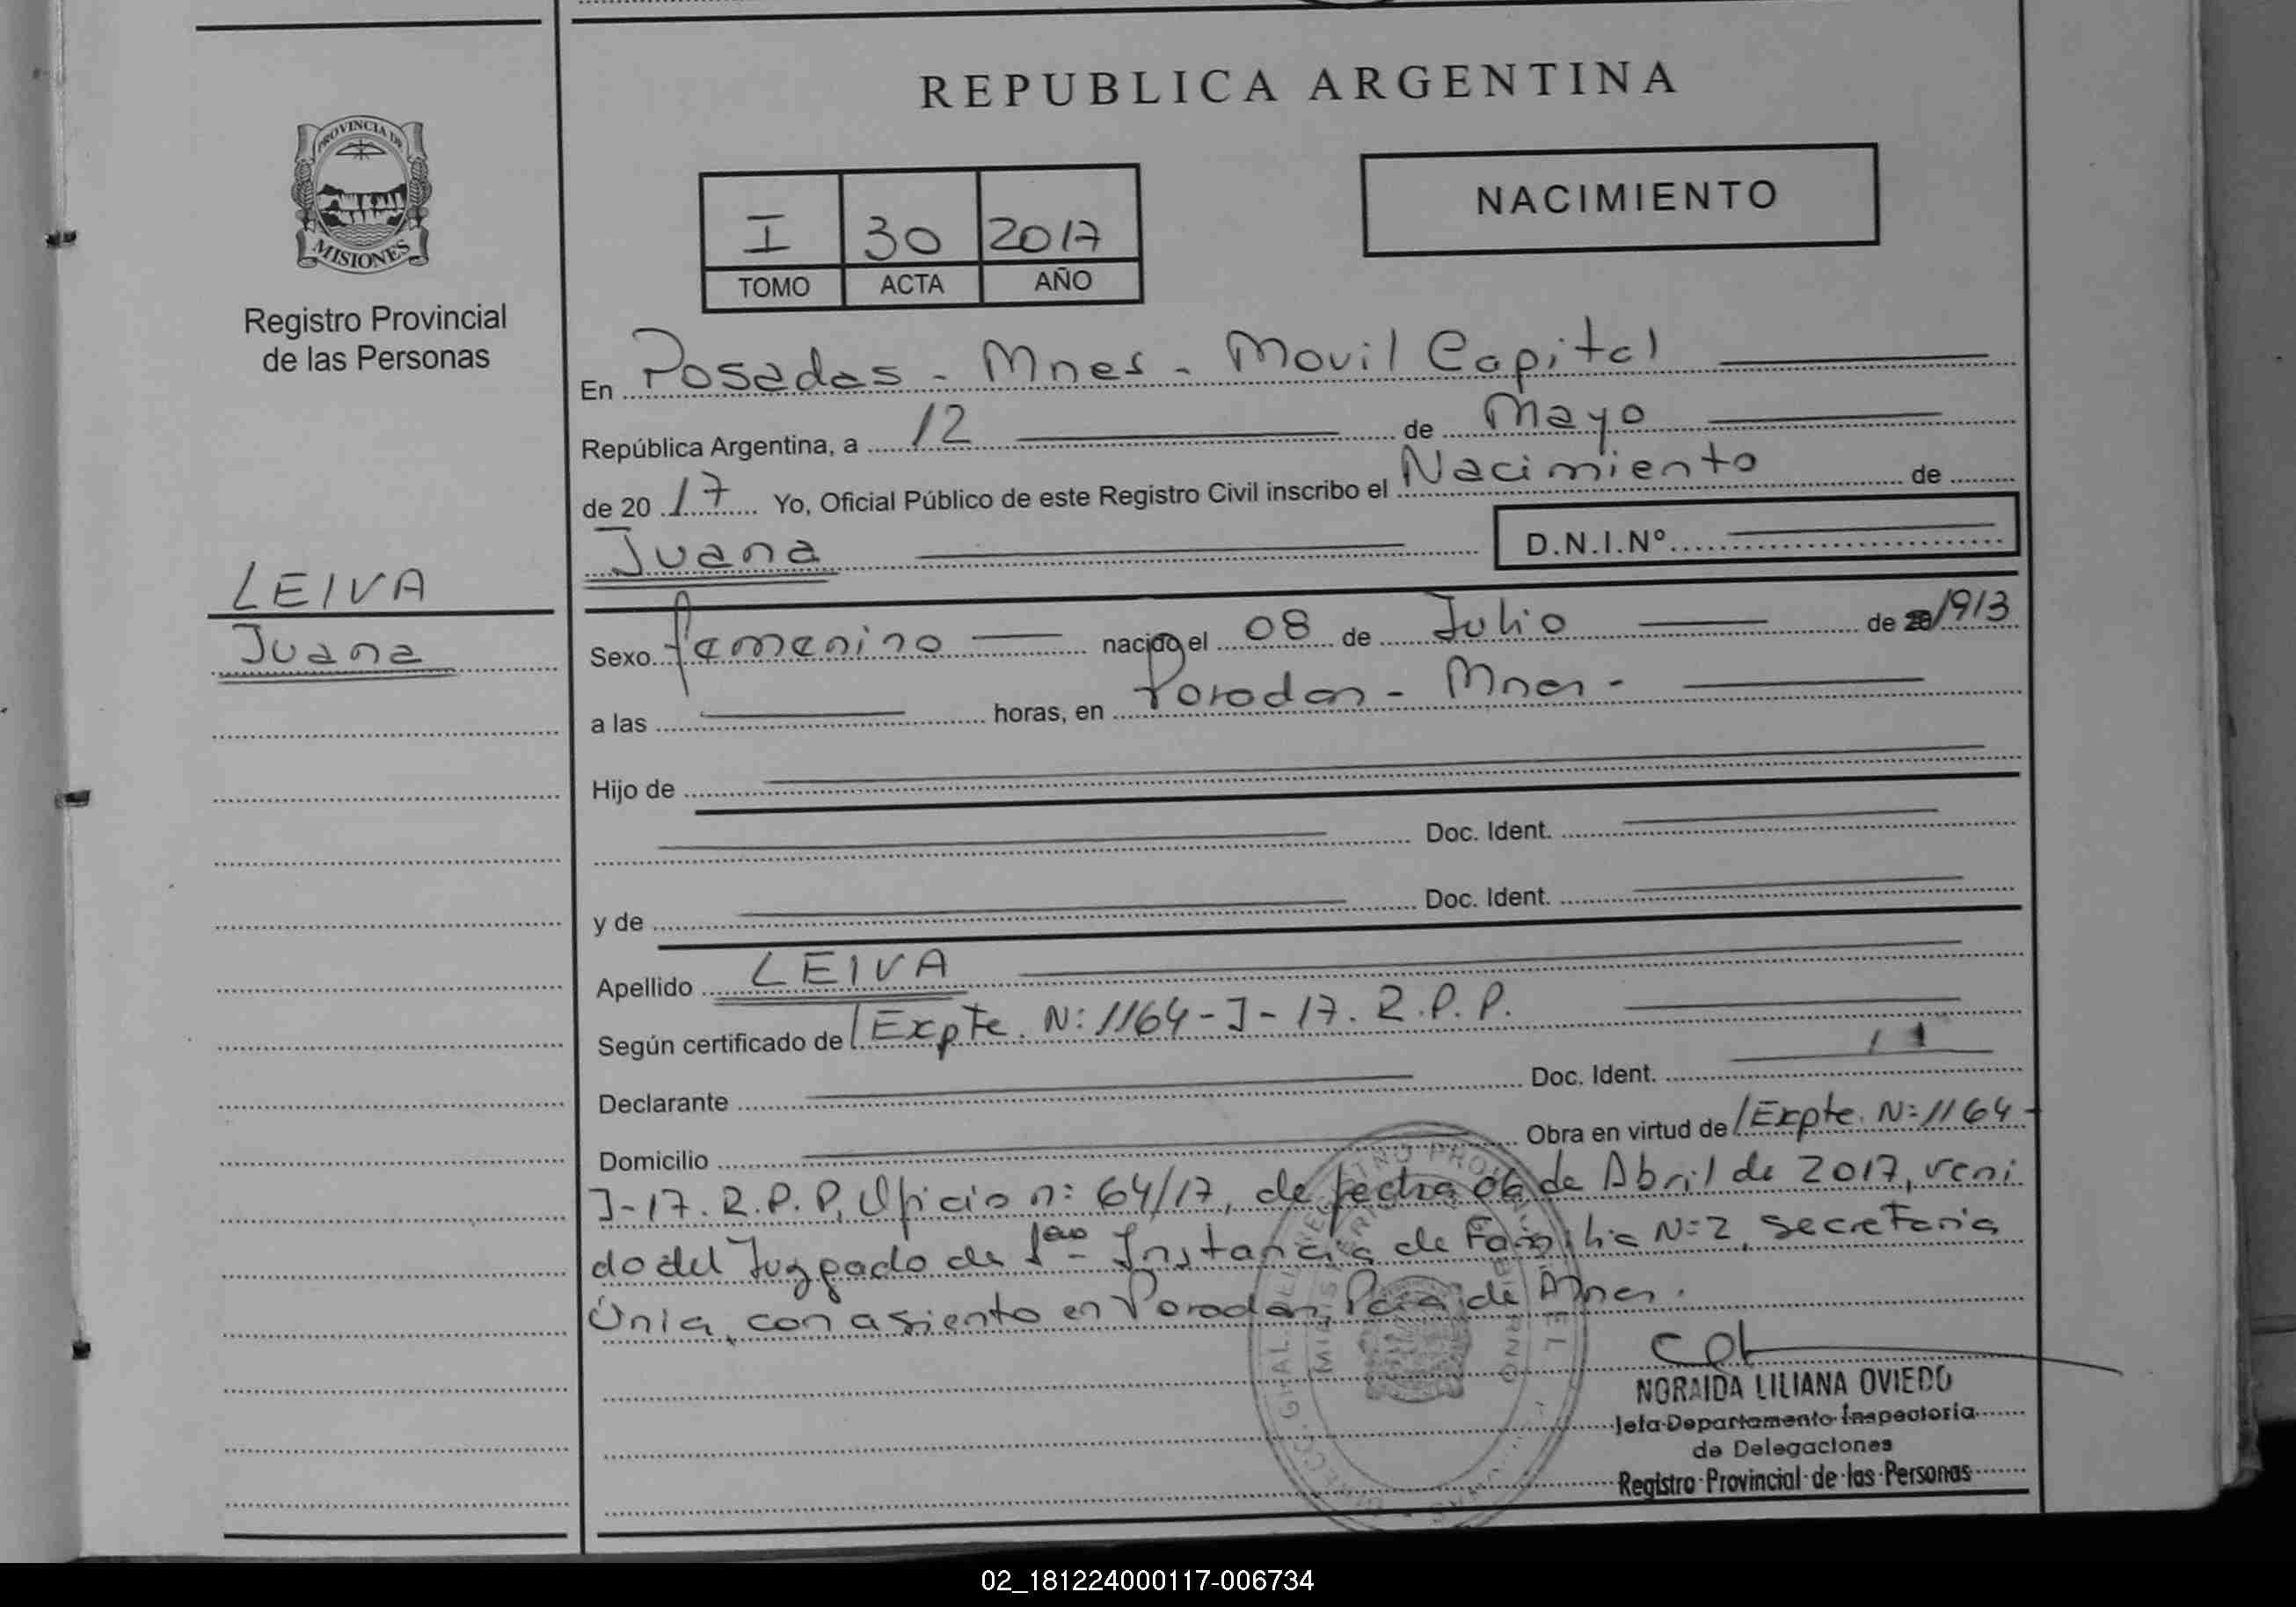 REPUBLICA ARGENTINA
PROVINCIA DE
MISIONES
Registro Provincial
de las Personas
I 30 2017
TOMO ACTA AÑO
NACIMIENTO
En Posadas - Mnes - Movil Capital
República Argentina, a 12 de Mayo
de 20 17 Yo, Oficial Público de este Registro Civil inscribo el Nacimiento de
Juana D.N.I.Nº
LEIVA
Juana
Sexo femenino nacido el 08 de Julio de 1913
a las horas, en Posadas - Mnes -
Hijo de
Doc. Ident.
y de Doc. Ident.
Apellido LEIVA
Según certificado de Expte. N: 1164 - J - 17. R. P. P.
Declarante Doc. Ident.
Domicilio Obra en virtud de Expte. N: 1164 -
J - 17. R. P. P, Oficio n: 64/17, de fecha 06 de Abril de 2017, veni
do del Juzgado de 1era Instancia de Familia N: 2, secretaria
Única, con asiento en Posadas, de Mnes.
NORAIDA LILIANA OVIEDO
Jefa Departamento Inspectoria
de Delegaciones
Registro Provincial de las Personas
02_181224000117-006734